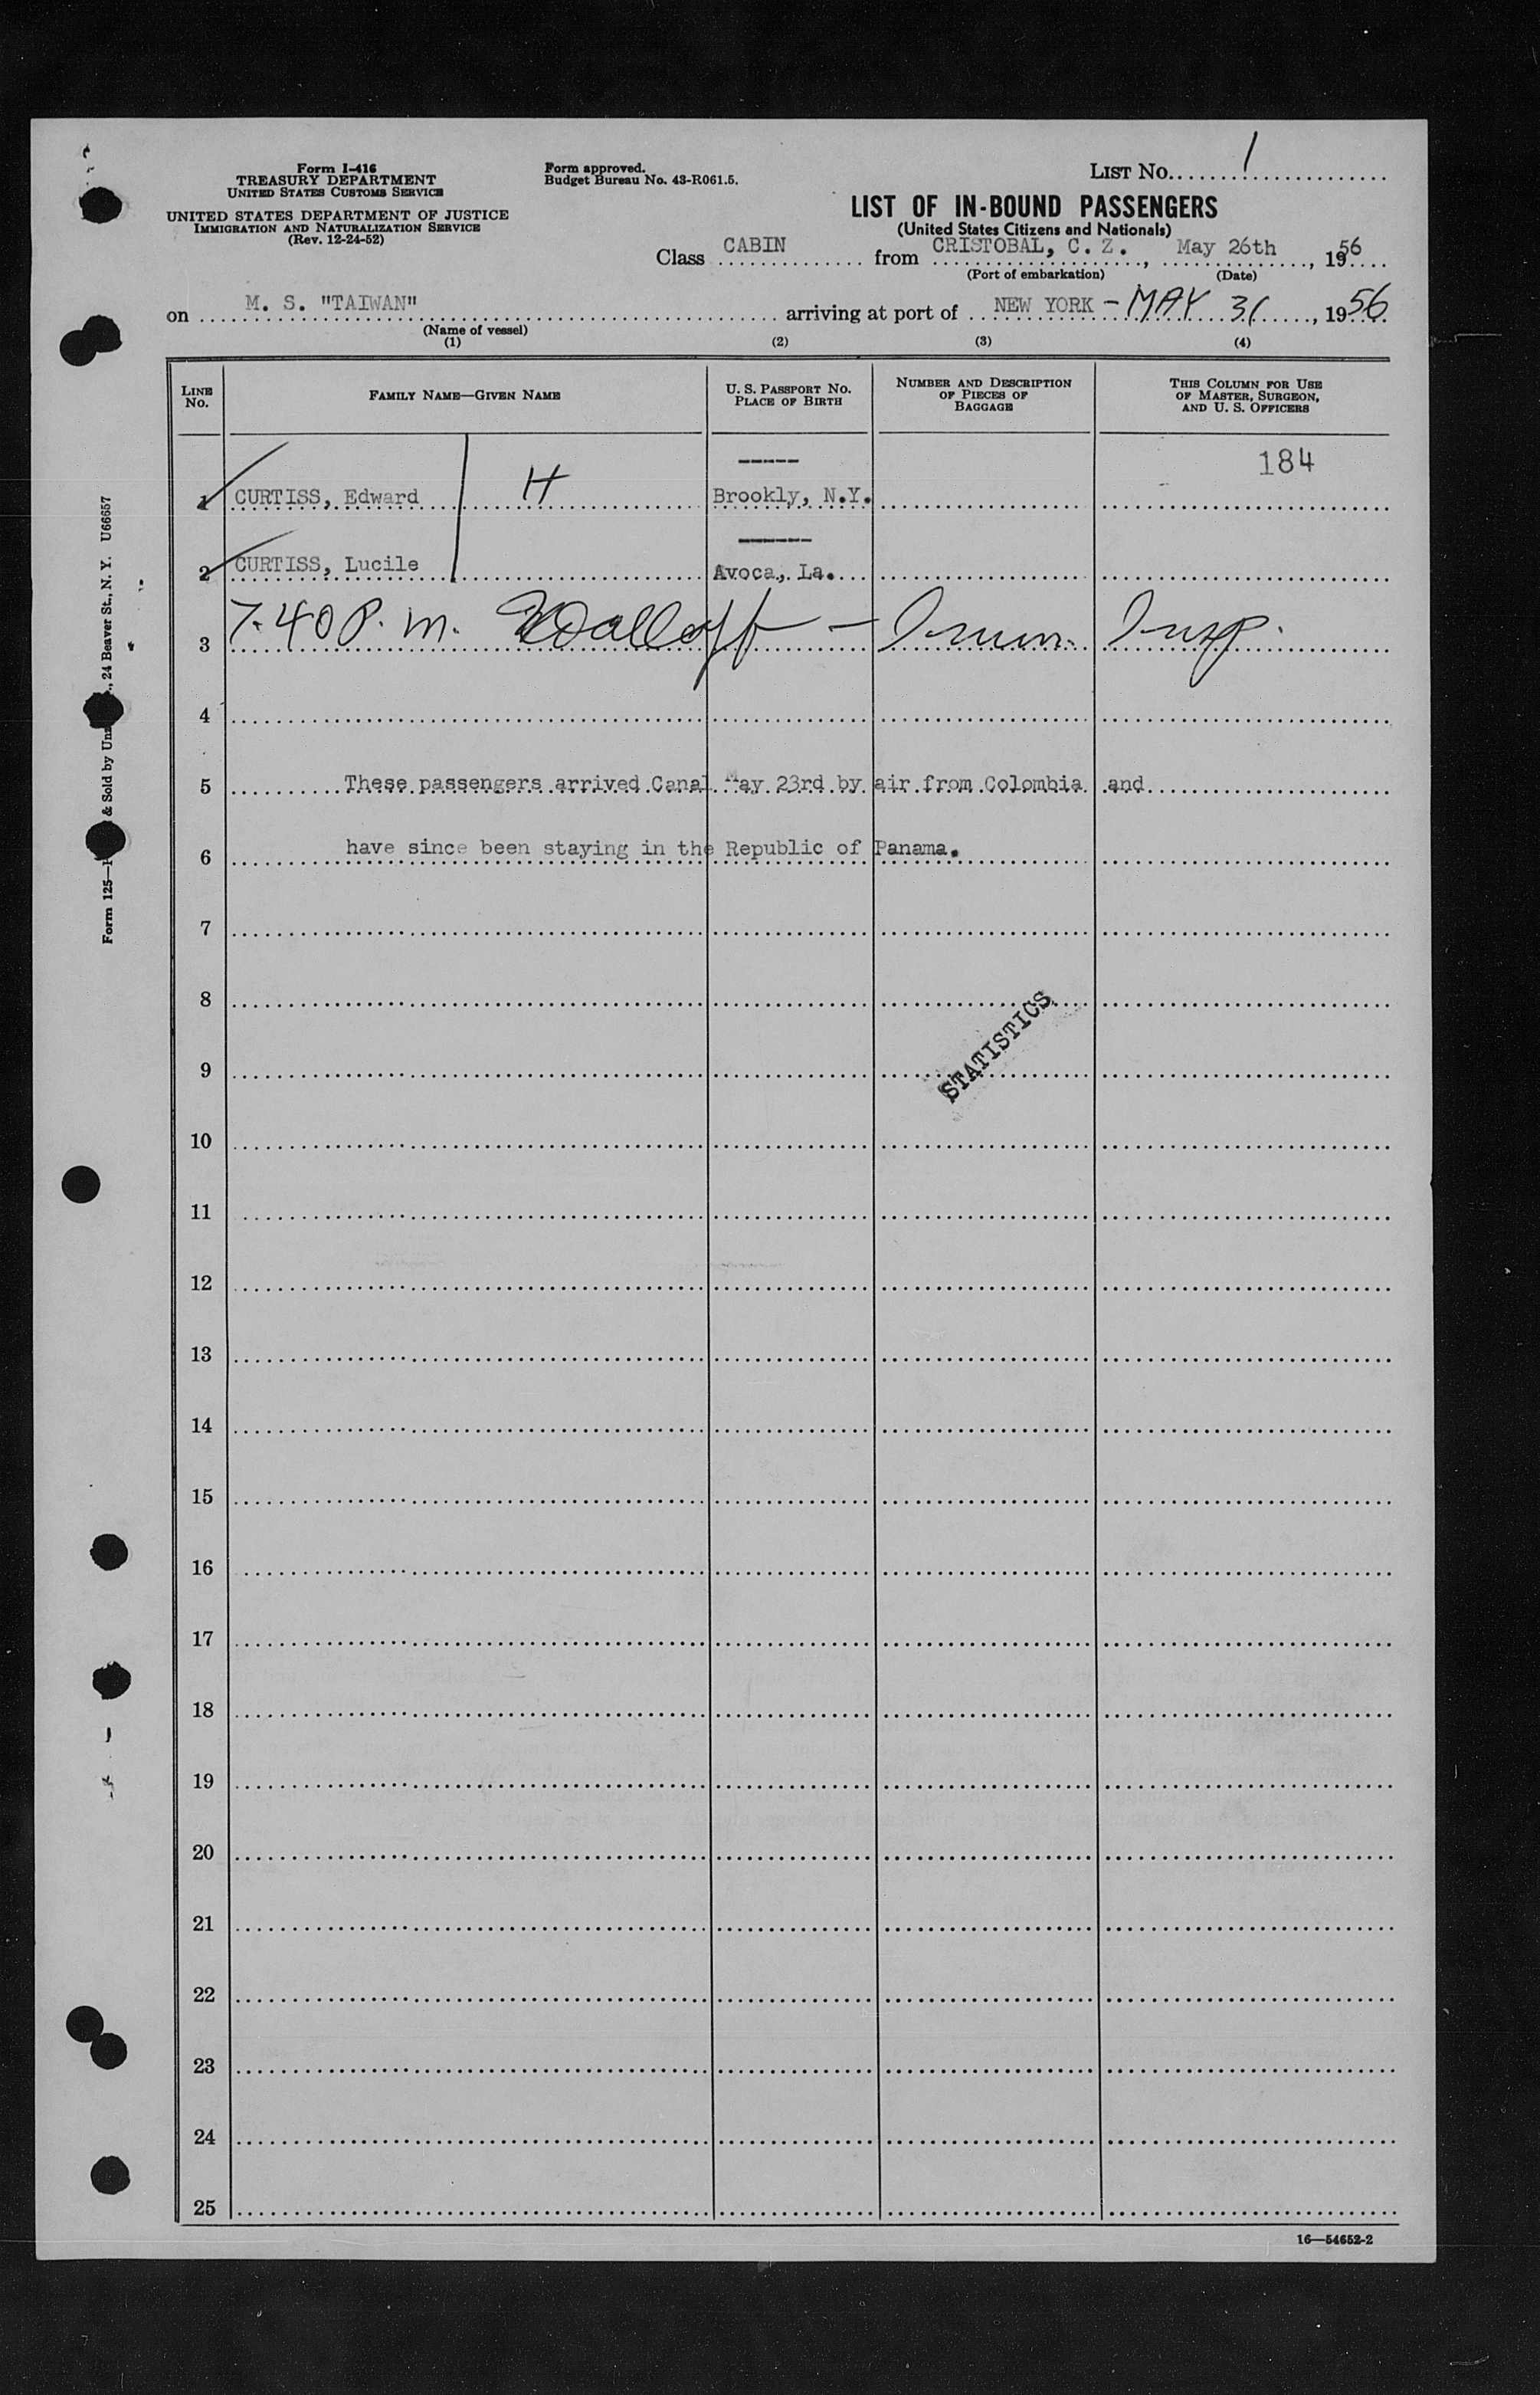 Form I-416
TREASURY DEPARTMENT
UNITED STATES CUSTOMS SERVICE
UNITED STATES DEPARTMENT OF JUSTICE
IMMIGRATION AND NATURALIZATION SERVICE
(Rev. 12-24-52)
Form approved.
Budget Bureau No. 43-R061.5.
LIST NO. 1
LIST OF IN-BOUND PASSENGERS
(United States Citizens and Nationals)
Class CABIN from CRISTOBAL, C. Z., May 26th, 1956
(Port of embarkation) (Date)
on M. S. "TAIWAN" arriving at port of NEW YORK - MAY 31, 1956
(Name of vessel)
(1) (2) (3) (4)
LINE NO. FAMILY NAME—GIVEN NAME U. S. PASSPORT NO. PLACE OF BIRTH NUMBER AND DESCRIPTION OF PIECES OF BAGGAGE THIS COLUMN FOR USE OF MASTER, SURGEON, AND U. S. OFFICERS
----- 184
1 CURTISS, Edward H Brookly, N.Y.
------
2 CURTISS, Lucile Avoca, La.
3 7-40 P. m. — Immn. Insp.
4
5 These passengers arrived Canal May 23rd by air from Colombia and
6 have since been staying in the Republic of Panama.
7
8
STATISTICS
9
10
11
12
13
14
15
16
17
18
19
20
21
22
23
24
25
16—54652-2
Form 125— & Sold by , 24 Beaver St., N. Y. U66657